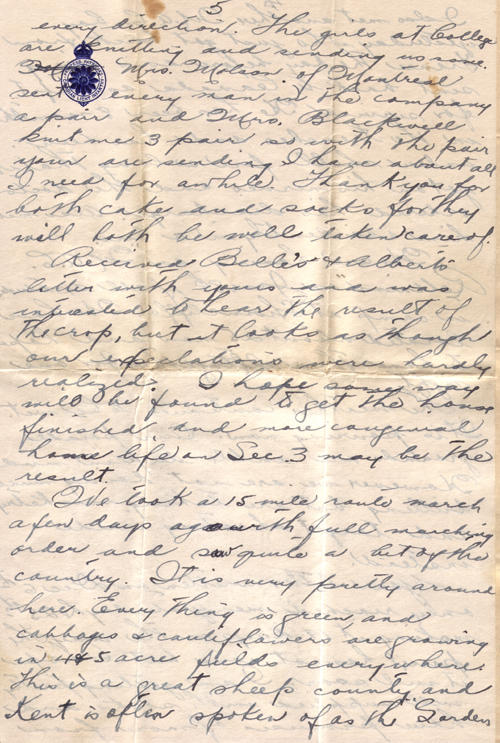 5
every direction. The girls at College
are knitting and sending us some.
Mrs. Molson of Montreal
sent every man in the company
a pair and Mrs. Blackwell
knit me 3 pair so with the pair
your are sending I have about all
I need for awhile. Thank you for
both cake and socks for they
will both be well taken care of.
Received Belle's & Albert's
letter with yours and was
intrested to hear the result of
the crop, but it looks as though
our expectations were hardly
realized. I hope some way
will be found to get the house
finished and more congenial
home life on Sec. 3 may be the
result.
We took a 15 mile route march
a few days ago with full marching
order and saw quite a bit of the
country. It is very pretty around
here. Every thing is green, and
cabbage & cauliflowers are growing
in 4 & 5 acre fields everywhere.
This is a great sheep county and
Kent is often spoken of as the Garden